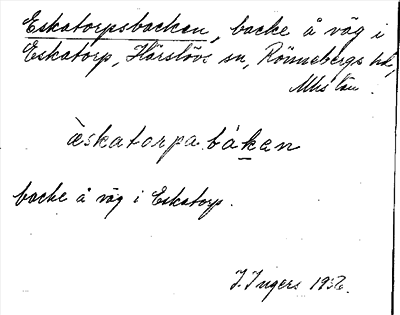 Eskatorpsbacken, backe å väg i
Eskatorp, Härslövs sn, Rönnebergs hd,
Mhs län.
æskatorpa båkan
backe å väg i Eskatorp.
I. Ingers 1932.